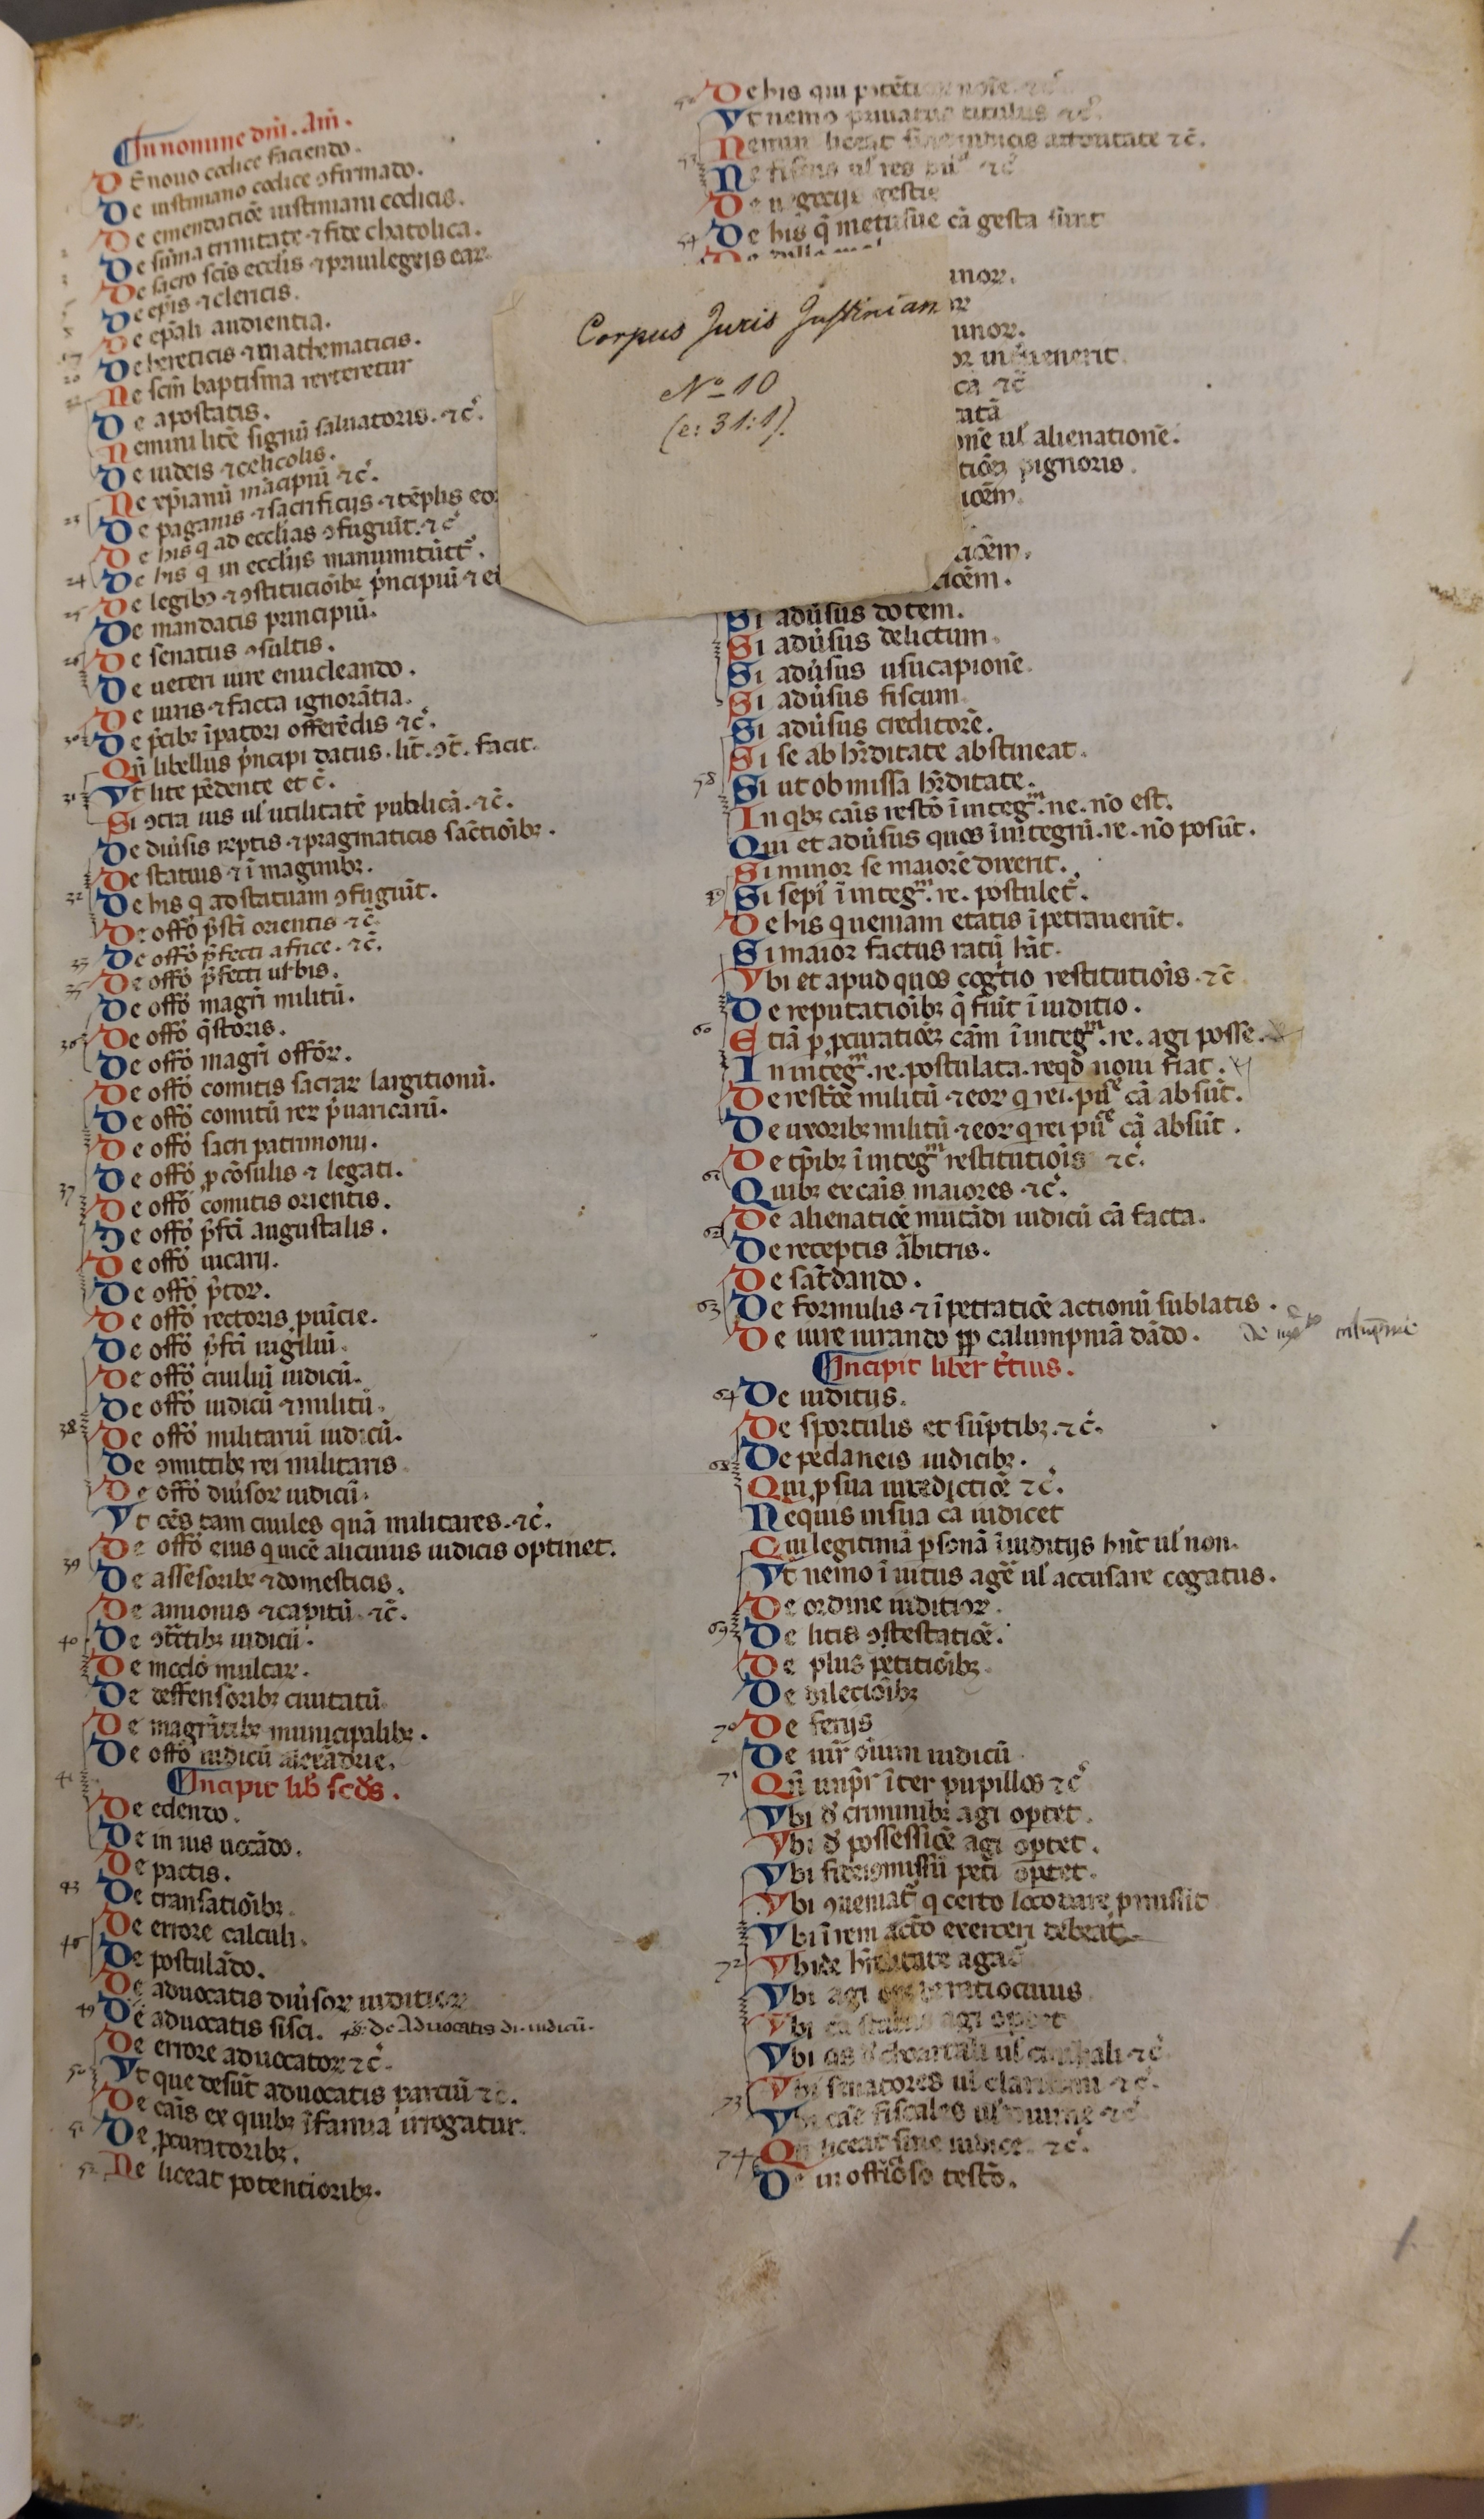 In nomine dñi. Am̃.
De nouo codice faciendo.
De iustiniano codice ↄfirmado.
De emendatiõe iustiniani codicis.
De sũma trinitate ⁊ fide chatolica.
De sacro scĩs ecclis ⁊ priuilegijs eaꝝ
De ep̃is ⁊ clericis.
De ep̃ali audientia.
De hereticis ⁊ mathematicis.
Ne scm̃ baptisma reiteretur
De apostatis.
Nemini licẽ signũ saluatoris. ⁊c̃.
De iudeis ⁊ celicolis.
Ne xp̃ianũ mãcipiũ ⁊c̃.
De paganis ⁊ sacrificijs ⁊ tẽplis eo
De his q̃ ad ecclias ↄfugiũt. ⁊c̃
De his q̃ in ecclijs manumitũt.
De legibꝫ ⁊ ↄstitucõibꝫ p̃ncipiũ ⁊ e
De mandatis principiũ.
De senatus ↄsultis.
De ueteri iure enucleando.
De iuris ⁊ facta ignorãtia.
De p̃cibꝫ ĩpatori offerẽdis ⁊c̃.
Qñ libellus p̃ncipi datus. lit̃. ↄt̃. facit.
Vt lite pẽdente et c̃.
Si ↄtra ius uł utilitatẽ publicã. ⁊c̃.
De diũsis reptis ⁊ pragmaticis sãctiõibꝫ.
De statuis ⁊ ĩmaginibꝫ.
De his q̃ ad statuam ↄfugiũt.
De offõ p̃fc̃ti orientis ⁊c̃
De offõ p̃fecti affrice. ⁊c̃.
De offõ p̃fecti urbis.
De offõ magr̃i militũ.
De offõ q̃storis.
De offõ magr̃i offõꝝ.
De offõ comitis sacraꝝ largitionũ.
De offõ comitũ reꝝ p̃uaricarũ.
De offõ sacri patrimonij.
De offõ ꝓcõsulis ⁊ legati.
De offõ comitis orientis.
De offõ p̃fc̃i augustalis.
De offõ uicarij.
De offõ p̃toꝝ.
De offõ rectoris ꝓuĩcie.
De offõ p̃fc̃i uigiliũ.
De offõ ciuiliũ iudicũ.
De offõ iudicũ ⁊ militũ.
De offõ militariũ iudicũ.
De ↄmittibꝫ rei militaris
De offõ diũsoꝝ iudicũ.
Vt oẽs tam ciuiles quã militares. ⁊c̃.
De offõ eius q̃ uicẽ alicuius iudicis optinet.
De assesoribꝫ ⁊ domesticis.
De annonis ⁊ capitũ ⁊c̃.
De ↄt̃ctibꝫ iudicũ.
De modo multaꝝ.
De deffensoribꝫ ciuitatũ
De magr̃atibꝫ municipalibꝫ.
De offõ iudicũ alexãdrie.
Incipit lib̃ scd̃s.
De edendo.
De in ius uocãdo.
De pactis.
De transatiõibꝫ.
De errore calculi.
De postulãdo.
De aduocatis diũsoꝝ iuditioꝝ
De aduocatis fisci. de Aduocatis di. iudicũ.
De errore aduocatoꝝ ⁊c̃.
Vt que desũt aduocatis parciũ ⁊c̃.
De cãis ex quibꝫ ĩfamia irrogatur.
De ꝓcuratoribꝫ.
Ne liceat potentioribꝫ.
De his qui potẽti nõie ⁊c̃
Vt nemo priuatus titulos ⁊c̃.
Nemini liceat sine iudicis autoritate ⁊c̃.
Ne fiscus uł res ⁊c̃
De negocijs gestis
De his q̃ metusue cã gesta sunt
Corpus Juris Justinian
No 10
(e: 31:1).
inoꝝ.
inoꝝ.
oꝝ inuenerit
ca ⁊c̃
ratã
onẽ uł alienationẽ.
tiõẽ pignoris.
icẽm.
Si adũsus dotem.
Si adũsus delictum.
Si adũsus usucapionẽ.
Si adũsus fiscum
Si adũsus creditorẽ.
Si se ab hr̃ditate abstineat.
Si ut obmissã hr̃ditatẽ.
In qbꝫ cãis restõ ĩ integ̃ꝝ. ne. nõ est.
Qui et adũsus quos ĩ integrũ. re. nõ posũt.
Si minor se maiorẽ dixerit.
Si sepi ĩ integꝝ. re. postulet̃.
De his q̃ ueniam etatis ĩpetrauerũt.
Si maior factus ratũ hũt.
Vbi et apud quos cogtio restitutiõis ⁊c̃
De reputatiõibꝫ q̃ fiũt ĩ iuditio.
Etiã p̱ ꝓcuratiõẽ cãm ĩ integ̃. re. agi posse.
In integ̃. re. postulata. ne qd̃ noui fiat.
De restõẽ militũ ⁊ eoꝝ q̃ rei. pu͞e cã absũt.
De uxoribꝫ militũ ⁊ eoꝝ q̃ rei pu͞e cã absũt.
De tp̃ibꝫ ĩ integ̃ restitutiõis ⁊c̃.
Quibꝫ ex cãis maiores ⁊c̃.
De alienatiõẽ mutãdi iudicij cã facta.
De receptis ãbitris.
De sat̃dando.
De formulis ⁊ ĩpetratiõẽ actionũ sublatis.
De iure iurando ꝓp̱ calumpniã dãdo.
Incipit liber t̃cius.
De iuditijs.
De sportulis et sũptibꝫ. ⁊c̃.
De pedaneis iudicibꝫ.
Qui ꝓ sua iurẽdictiõe ⁊c̃.
Ne quis in sua cã iudicet
Qui legitimã p̱sonã ĩ iuditijs hñt uł non.
Vt nemo ĩuitus agẽ uł accusare cogatur.
De ordine iuditioꝝ.
De litis ↄtestatiõẽ.
De plus petitiõibꝫ
De dilectiõibꝫ
De ferijs
De iurisd̃ oĩum iudicũ
Qñ imp̃r ĩter pupillos ⁊c̃
Vbi d̃ criminibꝫ agi oportet.
Vbi d̃ possessiõẽ agi oportet.
Vbi fideicomissũ peti oportet.
Vbi ↄueniat̃ q̃ certo loco dare ꝓmisit
Vbi ĩ rem actõ exerceri debeat.
Vbi de hr̃ditate agat̃
Vbi agi ratiociniis
Vbi cã status agi oportet
Vbi senatores uł clarissimi ⁊c̃.
Vbi cãe fiscales uł diuine ⁊c̃
Qñ liceat sine iudice ⁊c̃.
De inofficõso testõ.